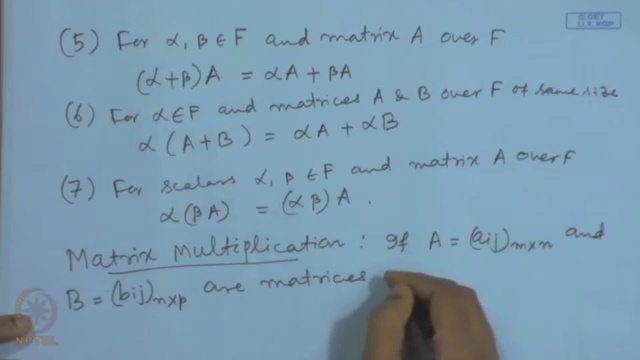 © CET
I.I.T. KGP
(5) For α, β ∈ F and matrix A over F
(α+β)A = αA + βA
(6) For α∈F and matrices A & B over F of same size
α (A+B) = αA + αB
(7) For scalars α, β ∈ F and matrix A over F
α(βA) = (αβ)A.
Matrix Multiplication: If A = (aij)m×n and
B = (bij)n×p are matrices
NPTEL